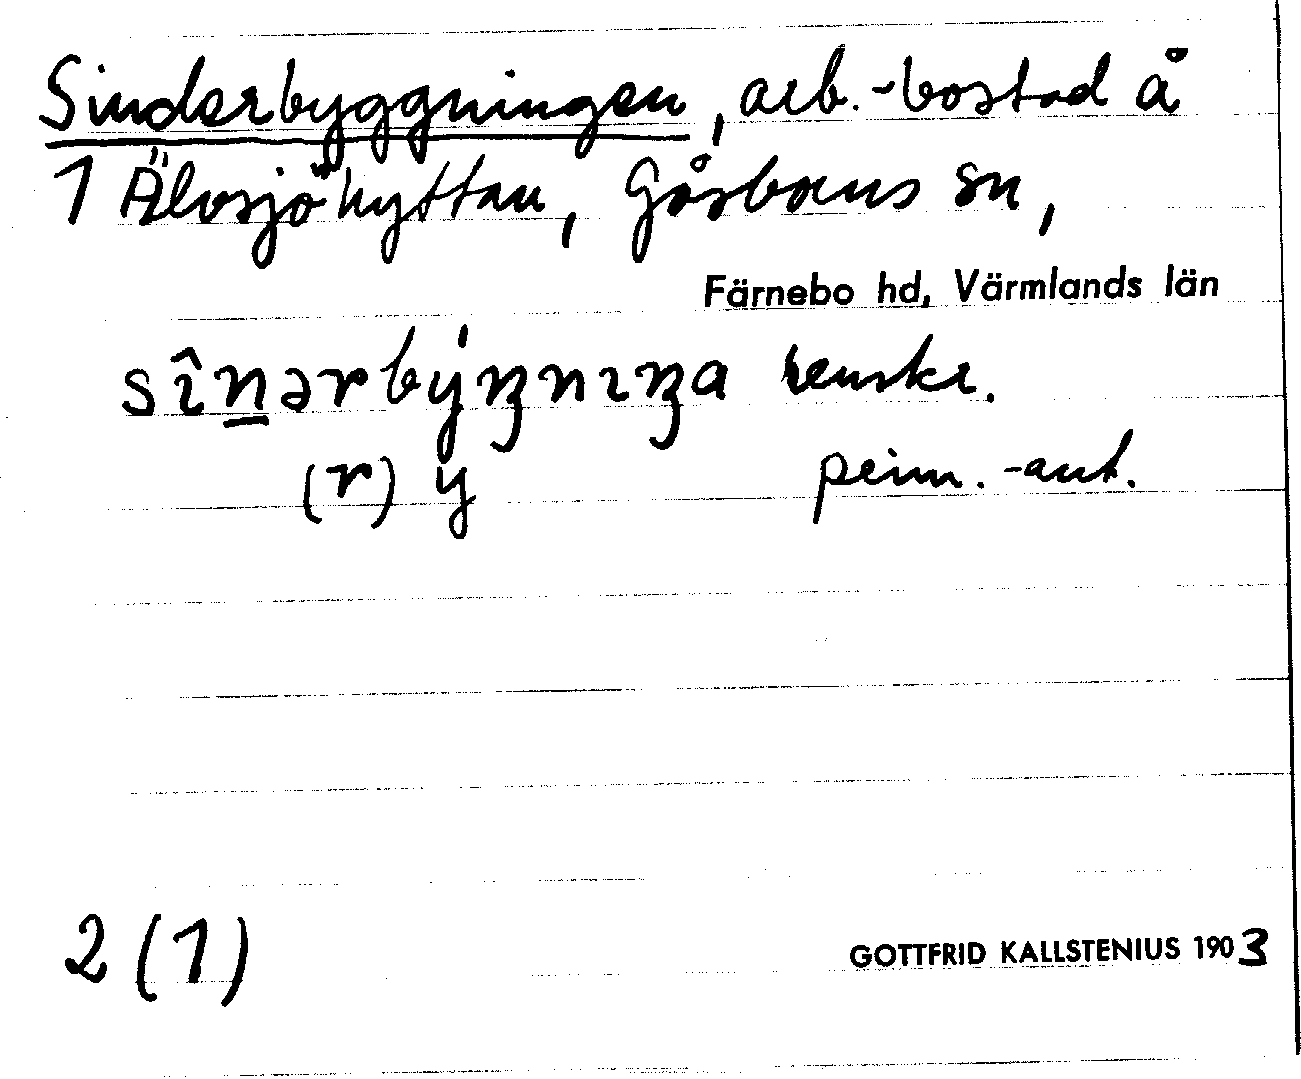 Sinderbyggningen, arb.-bostad å
1 Älvsjöhyttan, Gåsborns sn,
Färnebo hd, Värmlands län
renskr.
(r) y prim.-ant.
2 (1)
GOTTFRID KALLSTENIUS 1903